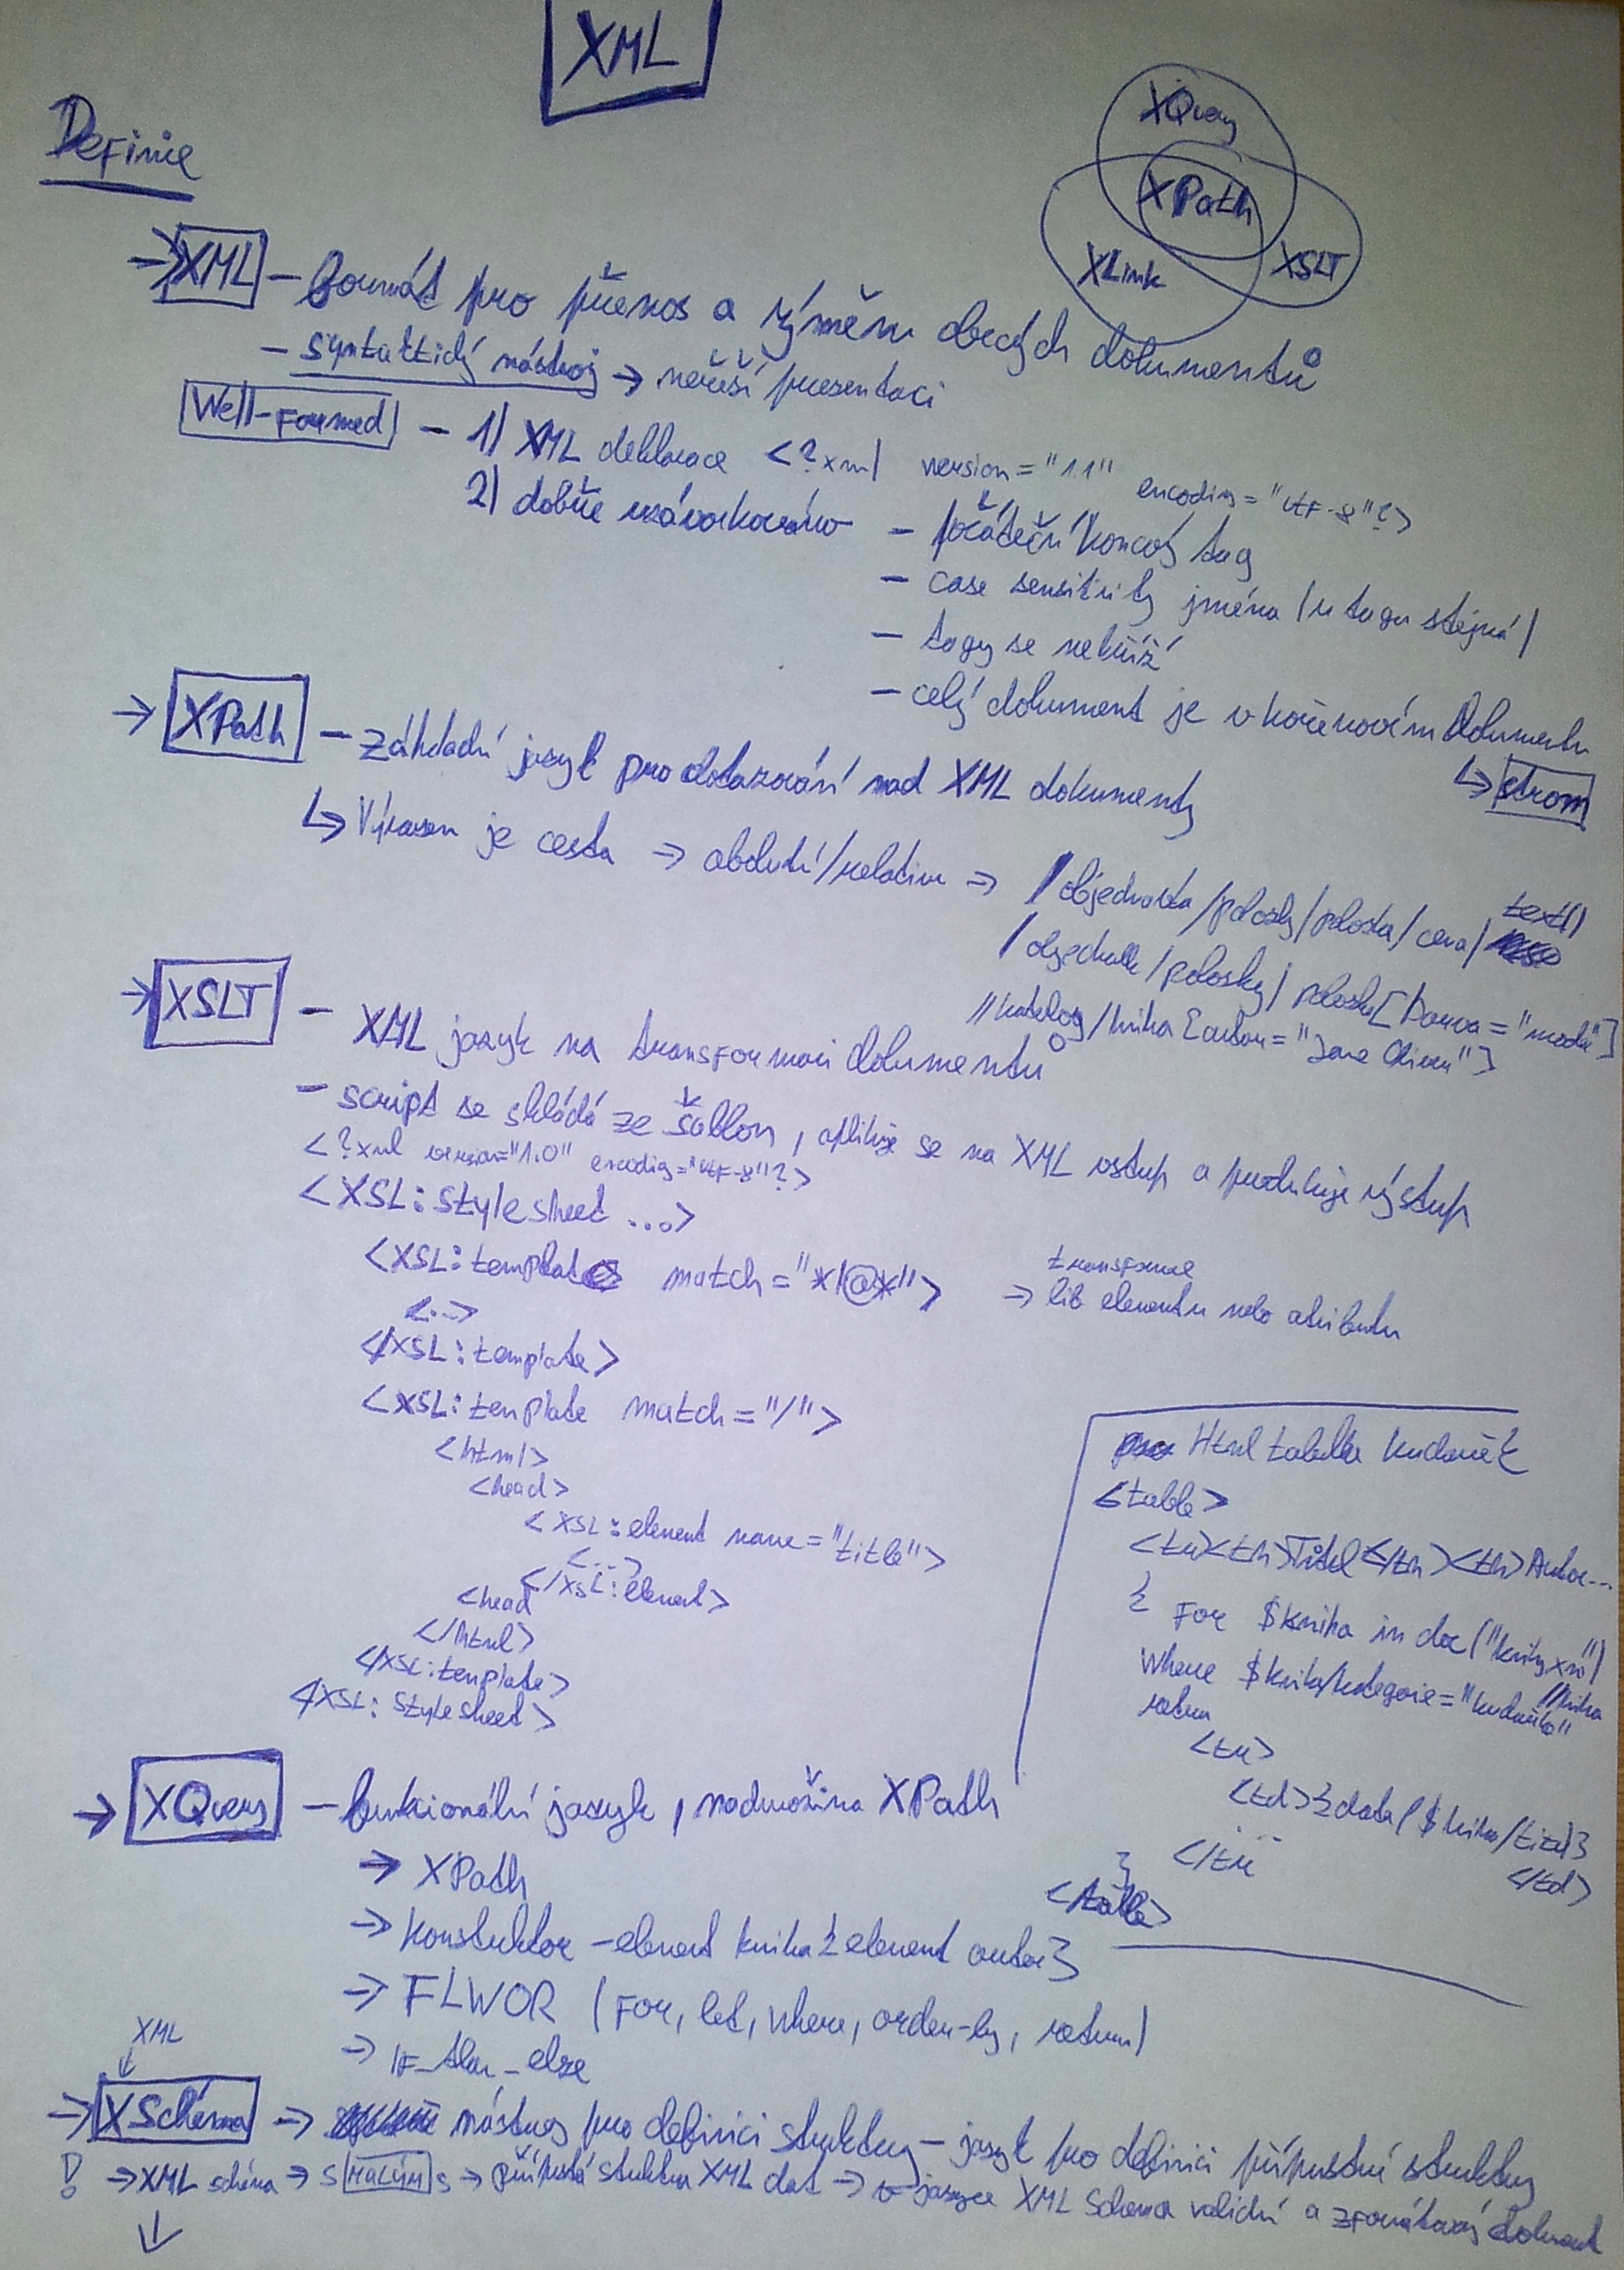 XML
Definice
XQuery
XPath
XLink
XSLT
→ XML – formát pro přenos a výměnu obecných dokumentů
– syntaktický nástroj → neřeší prezentaci
Well-Formed – 1) XML deklarace <?xml version="1.1" encoding="utf-8"?>
2) dobře uzávorkováno – počáteční/koncový tag
– case sensitivity jména (u tagu stejná)
– tagy se nekříží
– celý dokument je v kořenovém dokumentu
↳ strom
→ XPath – základní jazyk pro dotazování nad XML dokumenty
↳ Výrazem je cesta → absolutní/relativní → /objednavka/polozky/polozka/cena/text()
/objednavka/polozky/polozka[barva="modra"]
//katalog/kniha[autor="Jane Oliver"]
→ XSLT – XML jazyk na transformaci dokumentů
– script se skládá ze šablon, aplikuje se na XML vstup a produkuje výstup
<?xml version="1.0" encoding="utf-8"?>
<XSL:stylesheet ...>
<XSL:template match="*|@*"> → transformace lib elementu nebo atributu
<...>
</XSL:template>
<XSL:template match="/">
<html>
<head>
<XSL:element name="title">
<...>
</XSL:element>
<head
</html>
</XSL:template>
</XSL:stylesheet>
Html tabulka kuchařek
<table>
<tr><th>Titul</th><th>Autor...
{ For $kniha in doc("knihy.xml")
//kniha
Where $kniha/kategorie="kuchařka"
return
<tr>
<td>{data($kniha/titul)}
</td>
...
</tr
}
</table>
→ XQuery – funkcionální jazyk, nadmnožina XPath
→ XPath
→ Konstuktor – element kniha {element autor}
→ FLWOR (For, let, Where, order-by, return)
→ IF_then_else
XML
↓
→ XSchéma → nástroj pro definici struktury – jazyk pro definici přípustné struktury
! → XML schéma → s MALÝM s → přípustá struktura XML dat → v jazyce XML Schema validní a zformátovaný dokument
↓